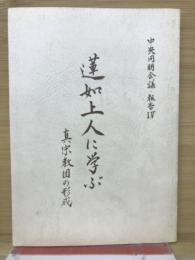 中央同朋会議 報告Ⅳ
蓮如上人に学ぶ
真宗教団の形成